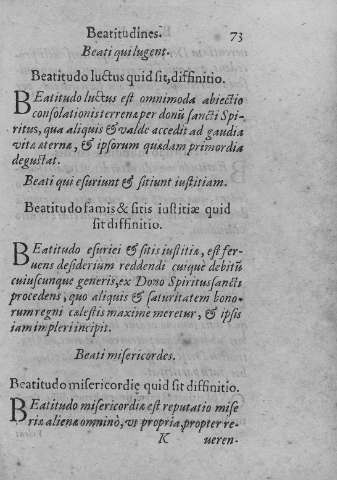 Beatitudines. 73
Beati qui lugent.
Beatitudo luctus quid sit, diffinitio.
BEatitudo luctus est omnimoda abiectio
consolationis terrenæ per donũ sancti Spi-
ritus, qua aliquis & valde accedit ad gaudia
vitæ æternæ, & ipsorum quædam primordia
degustat.
Beati qui esuriunt & sitiunt iustitiam.
Beatitudo famis & sitis iustitiæ quid
sit diffinitio.
BEatitudo esuriei & sitis iustitiæ, est fer-
uens desiderium reddendi cuique debitũ
cuiuscunque generis, ex Dono Spiritus sancti
procedens, quo aliquis & saturitatem bono-
rum regni cælestis maxime meretur, & ipsis
iam impleri incipit.
Beati misericordes.
Beatitudo misericordię quid sit diffinitio.
BEatitudo misericordiæ est reputatio mise
riæ alienæ omninò, vt propria, propter re-
K ueren-